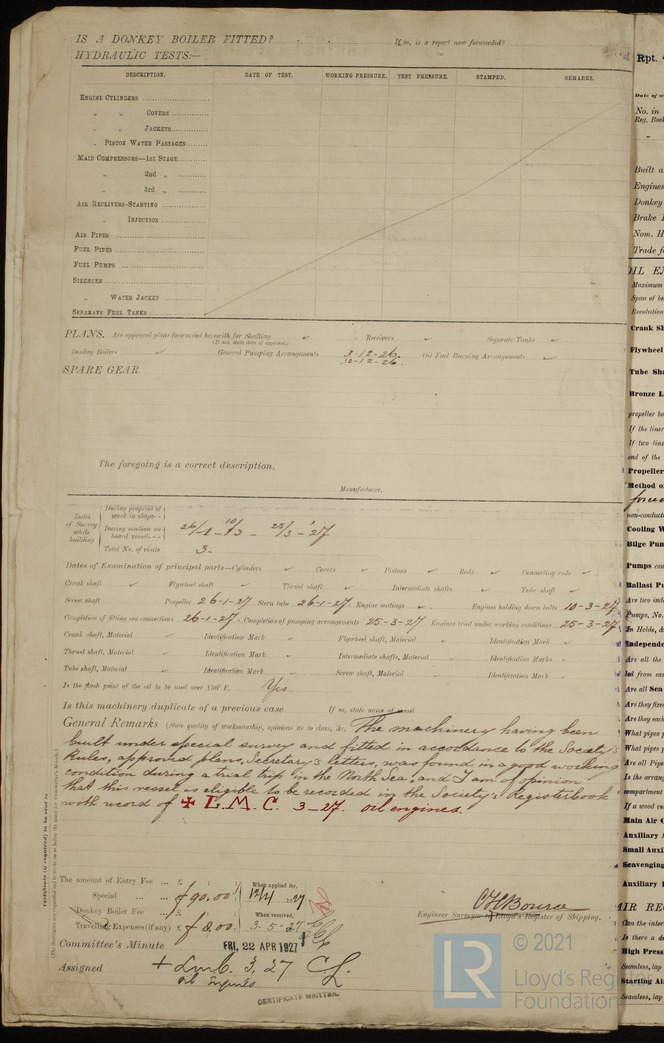 IS A DONKEY BOILER FITTED? If so, is a report now forwarded?
HYDRAULIC TESTS:—
DESCRIPTION. DATE OF TEST. WORKING PRESSURE. TEST PRESSURE. STAMPED. REMARKS.
ENGINE CYLINDERS
" " COVERS
" " JACKETS
" PISTON WATER PASSAGES
MAIN COMPRESSORS—1st STAGE
" 2nd "
" 3rd "
AIR RECEIVERS-STARTING
" INJECTION
AIR PIPES
FUEL PIPES
FUEL PUMPS
SILENCER
" WATER JACKET
SEPARATE FUEL TANKS
PLANS. Are approved plans forwarded herewith for Shafting ✓ Receivers ✓ Separate Tanks ✓
(If not, state date of approval)
Donkey Boilers ✓ General Pumping Arrangements 3-12-26. Oil Fuel Burning Arrangements ✓
30-12-26.
SPARE GEAR
The foregoing is a correct description,
Manufacturer.
Dates of Survey while building
During progress of work in shops--
During erection on board vessel---
26/1 - 10/3 - 25/3 - '27
Total No. of visits 3.
Dates of Examination of principal parts—Cylinders ✓ Covers ✓ Pistons ✓ Rods ✓ Connecting rods ✓
Crank shaft ✓ Flywheel shaft ✓ Thrust shaft ✓ Intermediate shafts ✓ Tube shaft ✓
Screw shaft Propeller 26-1-27 Stern tube 26-1-27. Engine seatings ✓ Engines holding down bolts 10-3-27
Completion of fitting sea connections 26-1-27. Completion of pumping arrangements 25-3-27 Engines tried under working conditions 25-3-27
Crank shaft, Material ✓ Identification Mark ✓ Flywheel shaft, Material ✓ Identification Mark ✓
Thrust shaft, Material ✓ Identification Mark ✓ Intermediate shafts, Material ✓ Identification Marks ✓
Tube shaft, Material ✓ Identification Mark ✓ Screw shaft, Material ✓ Identification Mark ✓
Is the flash point of the oil to be used over 150° F. Yes.
Is this machinery duplicate of a previous case If so, state name of vessel
General Remarks (State quality of workmanship, opinions as to class, &c. The machinery having been
built under special survey and fitted in accordance to the Society's
Rules, approved plans, Secretary's letters, was found in a good working
condition during a trial trip in the North Sea, and I am of opinion
that this vessel is eligible to be recorded in the Society's Registerbook
with record of ✠ L.M.C. 3-27. oil engines.
The amount of Entry Fee ... £
Special ... ... £ 90.00
Donkey Boiler Fee ... £
Travelling Expenses (if any) £ 8.00
When applied for,
1927
When received,
3.5.27
Engineer Surveyor to Lloyd's Register of Shipping.
Committee's Minute FRI. 22 APR 1927
Assigned + LMC. 3,27 CL
Oil Engines
CERTIFICATE WRITTEN.
Rpt.
No. in
Reg. Book
Built a
Engines
Donkey
Brake
Nom. H
Trade f
OIL EN
Maximum
Span of be
Revolution
Crank Sh
Flywheel
Tube Sha
Bronze L
propeller bo
If the liner
If two line
end of the
Propeller
Method o
non-conduct
Cooling W
Bilge Pum
Pumps con
Ballast Pu
Are two ind
Pumps, No.
In Holds, &
Independe
Are all the
led from eac
Are all Sea
Are they fixed
Are they each
What pipes
What pipes
Are all Pipe
Is the arrang
compartment
If a wood ve
Main Air C
Auxiliary A
Small Auxi
Scavenging
Auxiliary
AIR REC
Can the inter
Is there a d
High Press
Seamless, lap
Starting Air
Seamless, lap
LR
© 2021
Lloyd's Register
Foundation